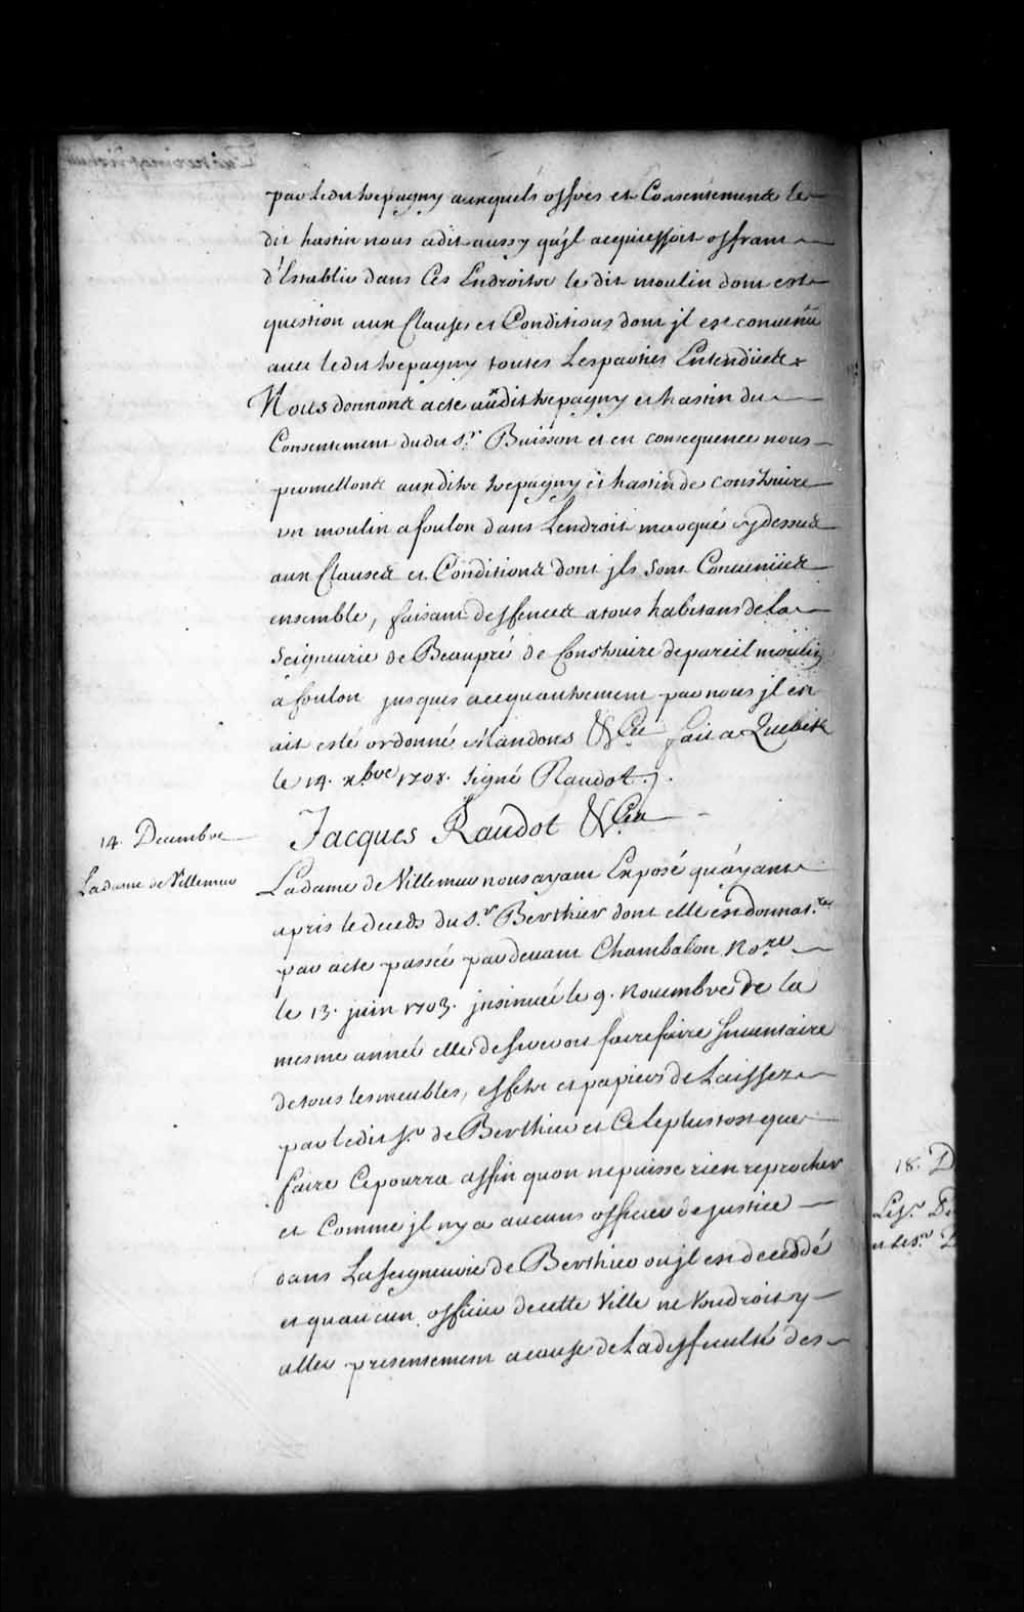 par ledit trepagny auxquels offres et Consentements le
dit hastin nous a dit aussy qu'jl acquiessoit offrant
d'Establir dans Ces Endroits le dit moulin dont est
question aux Clauses et Conditions dont jl est convenu
avec ledit trepagny toutes Les parties Entendües
Nous donnons acte audit trepagny et hastin du
Consentement dudit Sr. Buisson et en consequence nous
permettons auxdits trepagny et hastin de construire
un moulin a foulon dans Lendroit marqué cy dessus
aux Clauses et Conditions dont jls sont Convenües
ensemble, faisant deffences a tous habitans de la
Seigneurie de Beaupré de Construire de pareil moulin
a foulon jusques acequautrement par nous jl en
ait esté ordonné Mandons &Ca fait a Quebek
le 14. xbre 1708. Signé Raudot ./.
14. Decembre
La dame de Villemur
Jacques Raudot &Ca
La dame de Villemur nous ayant Exposé qu'ayant
apris le deceds du Sr. Berthier dont elle est donnat.re
par acte passée pardevant Chambalon No.re
le 13. juin 1703. jnsinuée le 9. Novembre de la
mesme année elle desireroit faire faire Jnventaire
de tous les meubles, effets et papiers delaissez
par ledit Sr. de Berthier et Ce le plus tost que
faire Ce pourra affin quon ne puisse rien reprocher
et Comme jl ny a aucuns officier de justice
dans La Seigneurie de Berthier ou jl est deceddé
et quaucun officier de cette Ville ne Voudroit y
aller presentement acause de La difficulté des
18. D
Le Sr. De
et le Sr. D